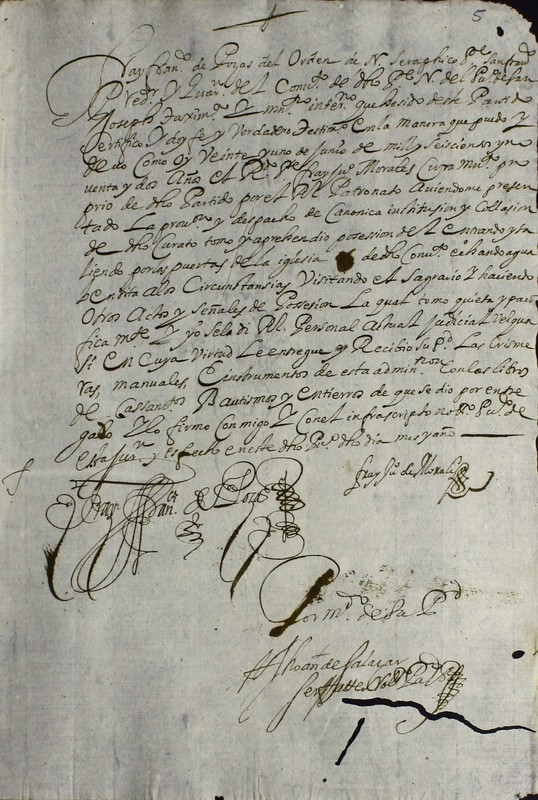 5
Fray Fran.co de Pozas del Orden de N. Seraphico P.e San Fran.co
Pred.or y Guar.n del Conv.to de dho P.e N. del Pu.o de San
Joseph Y min.ro inter.no que he sido deste Partido
Certifico y doy fe y Verdadero Testim.o en la manera que puedo y
devo Como oy Veinte y uno de Junio de mil y seiscientos y no
venta y dos Años el R.do P.e fray Ju.o Morales Cura min.ro pro
prio de dho Partido por el Rl Patronato Aviendome presen
tado La prov.on y despacho de Canonica institusion y Collasion
de dho Curato tomo y aprehendio posesion del entrando y sa
liendo por las puertas de la iglesia de dho Conv.to echando agua
bendita a los Circunstansias Visitando el Sagrario Y haviendo
Otros Actos y Señales de Possesion La qual tomo quieta y paci
fica m.te Y yo se la di Rl. Personal Actual Judicial Vel qua
si en Cuya Virtud Le entregue y Recibio su P.d Las Crisme
ras, manuales, E instrumentos de esta admin.on Con los libros
de Cassam.tos Bautismos y Entierros de que se dio por entre
gado Y lo firmo Conmigo Y Con el infrascripto no.rio
y es fecho en este dho Pu.o dho dia mes y año
Fray Fran.co de Pozas
fray Ju.o de Morales
Por m.do de su P.d
Jhoan de Salaçar